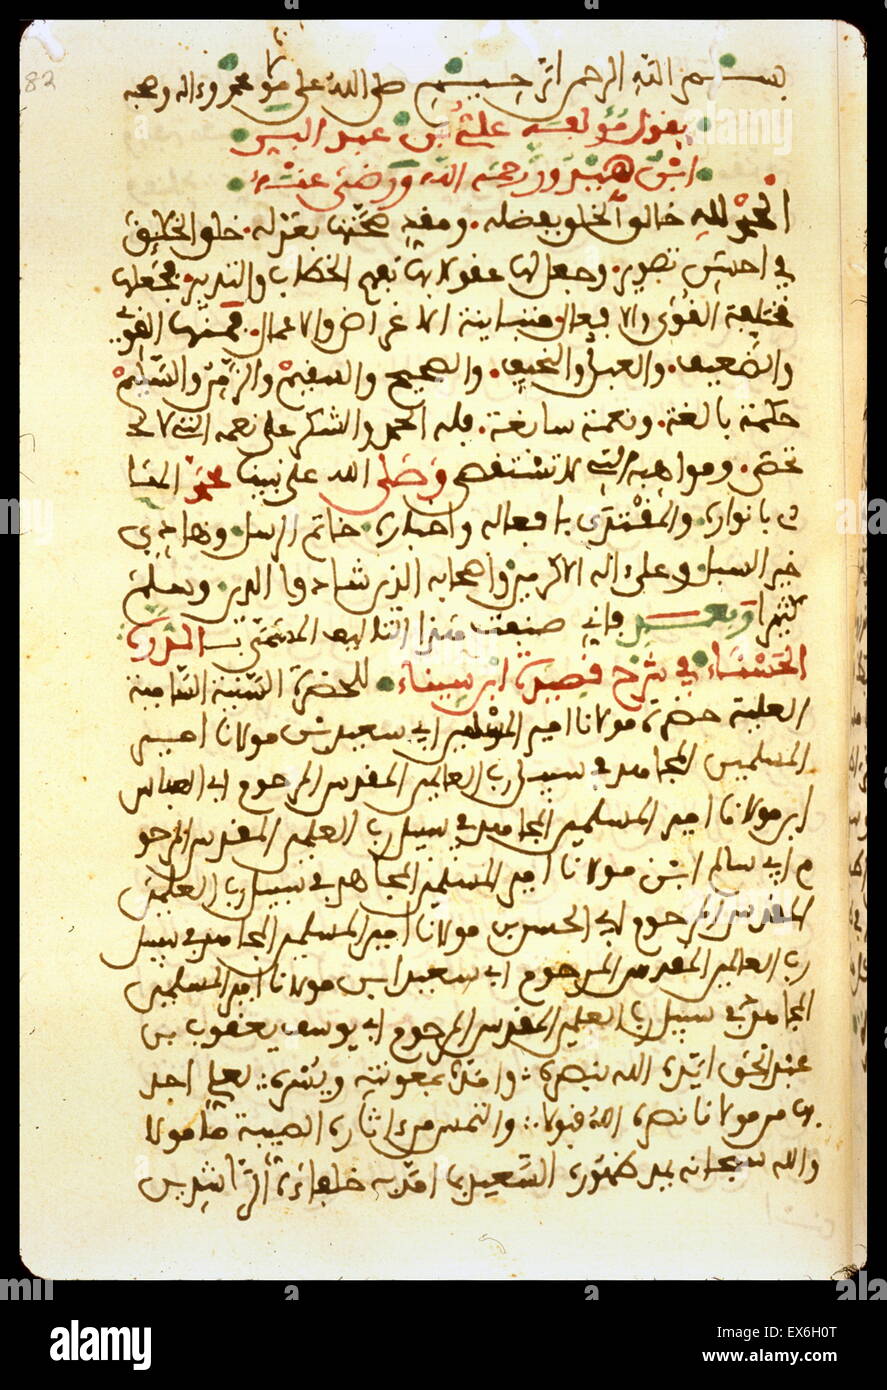 82
بسم الله الرحمن الرحيم صلى الله على محمد وءاله وصحبه
يقول مؤلفه علي بن عبد
ابن هيدور رحمه الله ورضي عنه
الحمد لله خالق الخلق بفضله ومفيد بعدله خلق الخلائق
في احسن تصوير وجعل لها عقولا بها تفهم الخطاب والتدبير فجعلها
مختلفة القوى والافعال متباينة الاغراض والاعمال فمنها القوي
والضعيف والعبل والنحيف والصحيح والسقيم والزمن والسليم
حكمة بالغة ونعمة سابغة فله الحمد والشكر على نعمه التي لا
تحصى ومواهبه التي لا تستقصى وصلى الله على نبينا محمد
بانواره والمقتدى بافعاله واخباره خاتم الرسل وهادي
خير السبل وعلى ءاله الاكرمين واصحابه الذين شادوا الدين وسلم
كثيرا وبعد فاني صنعت هذا التاليف المسمى
الحسناء في شرح قصيدة ابن سيناء للحضرة السنية السامية
العلية حضرة مولانا امير المسلمين ابي سعيد بن مولانا امير
المسلمين المجاهد في سبيل رب العالمين المقدس المرحوم ابي العباس
ابن مولانا امير المسلمين المجاهد في سبيل رب العلمين المقدس المرحو
م ابي سالم ابن مولانا امير المسلمين المجاهد في سبيل رب العلمين
المقدس المرحوم ابي الحسن بن مولانا امير المسلمين المجاهد في سبيل
رب العالمين المقدس المرحوم ابي سعيد ابن مولانا امير المسلمين
المجاهد في سبيل رب العلمين المقدس المرحوم ابي يوسف يعقوب بن
عبد الحق ايده الله بنصره وامده بمعونته ويسره
من مولانا نصره الله قبولا والتمس من ءاثاره
والله سبحانه السعيدة خلفائه الراشدين
alamy
a
a
alamy stock photo
EX6H0T
www.alamy.com